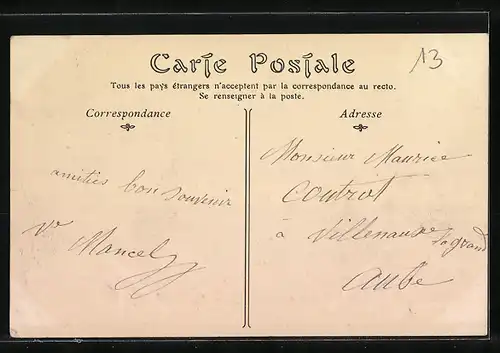 Carte Postale
13
Tous les pays étrangers n'acceptent par la correspondance au recto.
Se renseigner à la poste.
Correspondance
amitiés bon souvenir
Ve Mancel
Adresse
Monsieur Maurice
Coutrot
à Villenauxe la grand
Aube